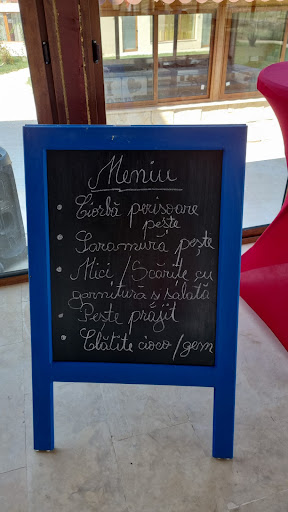 Meniu
Ciorbă perisoare
pește
Saramură pește
Mici / Scărițe cu
garnitură și salată
Pește prăjit
Clătite cioco / gem